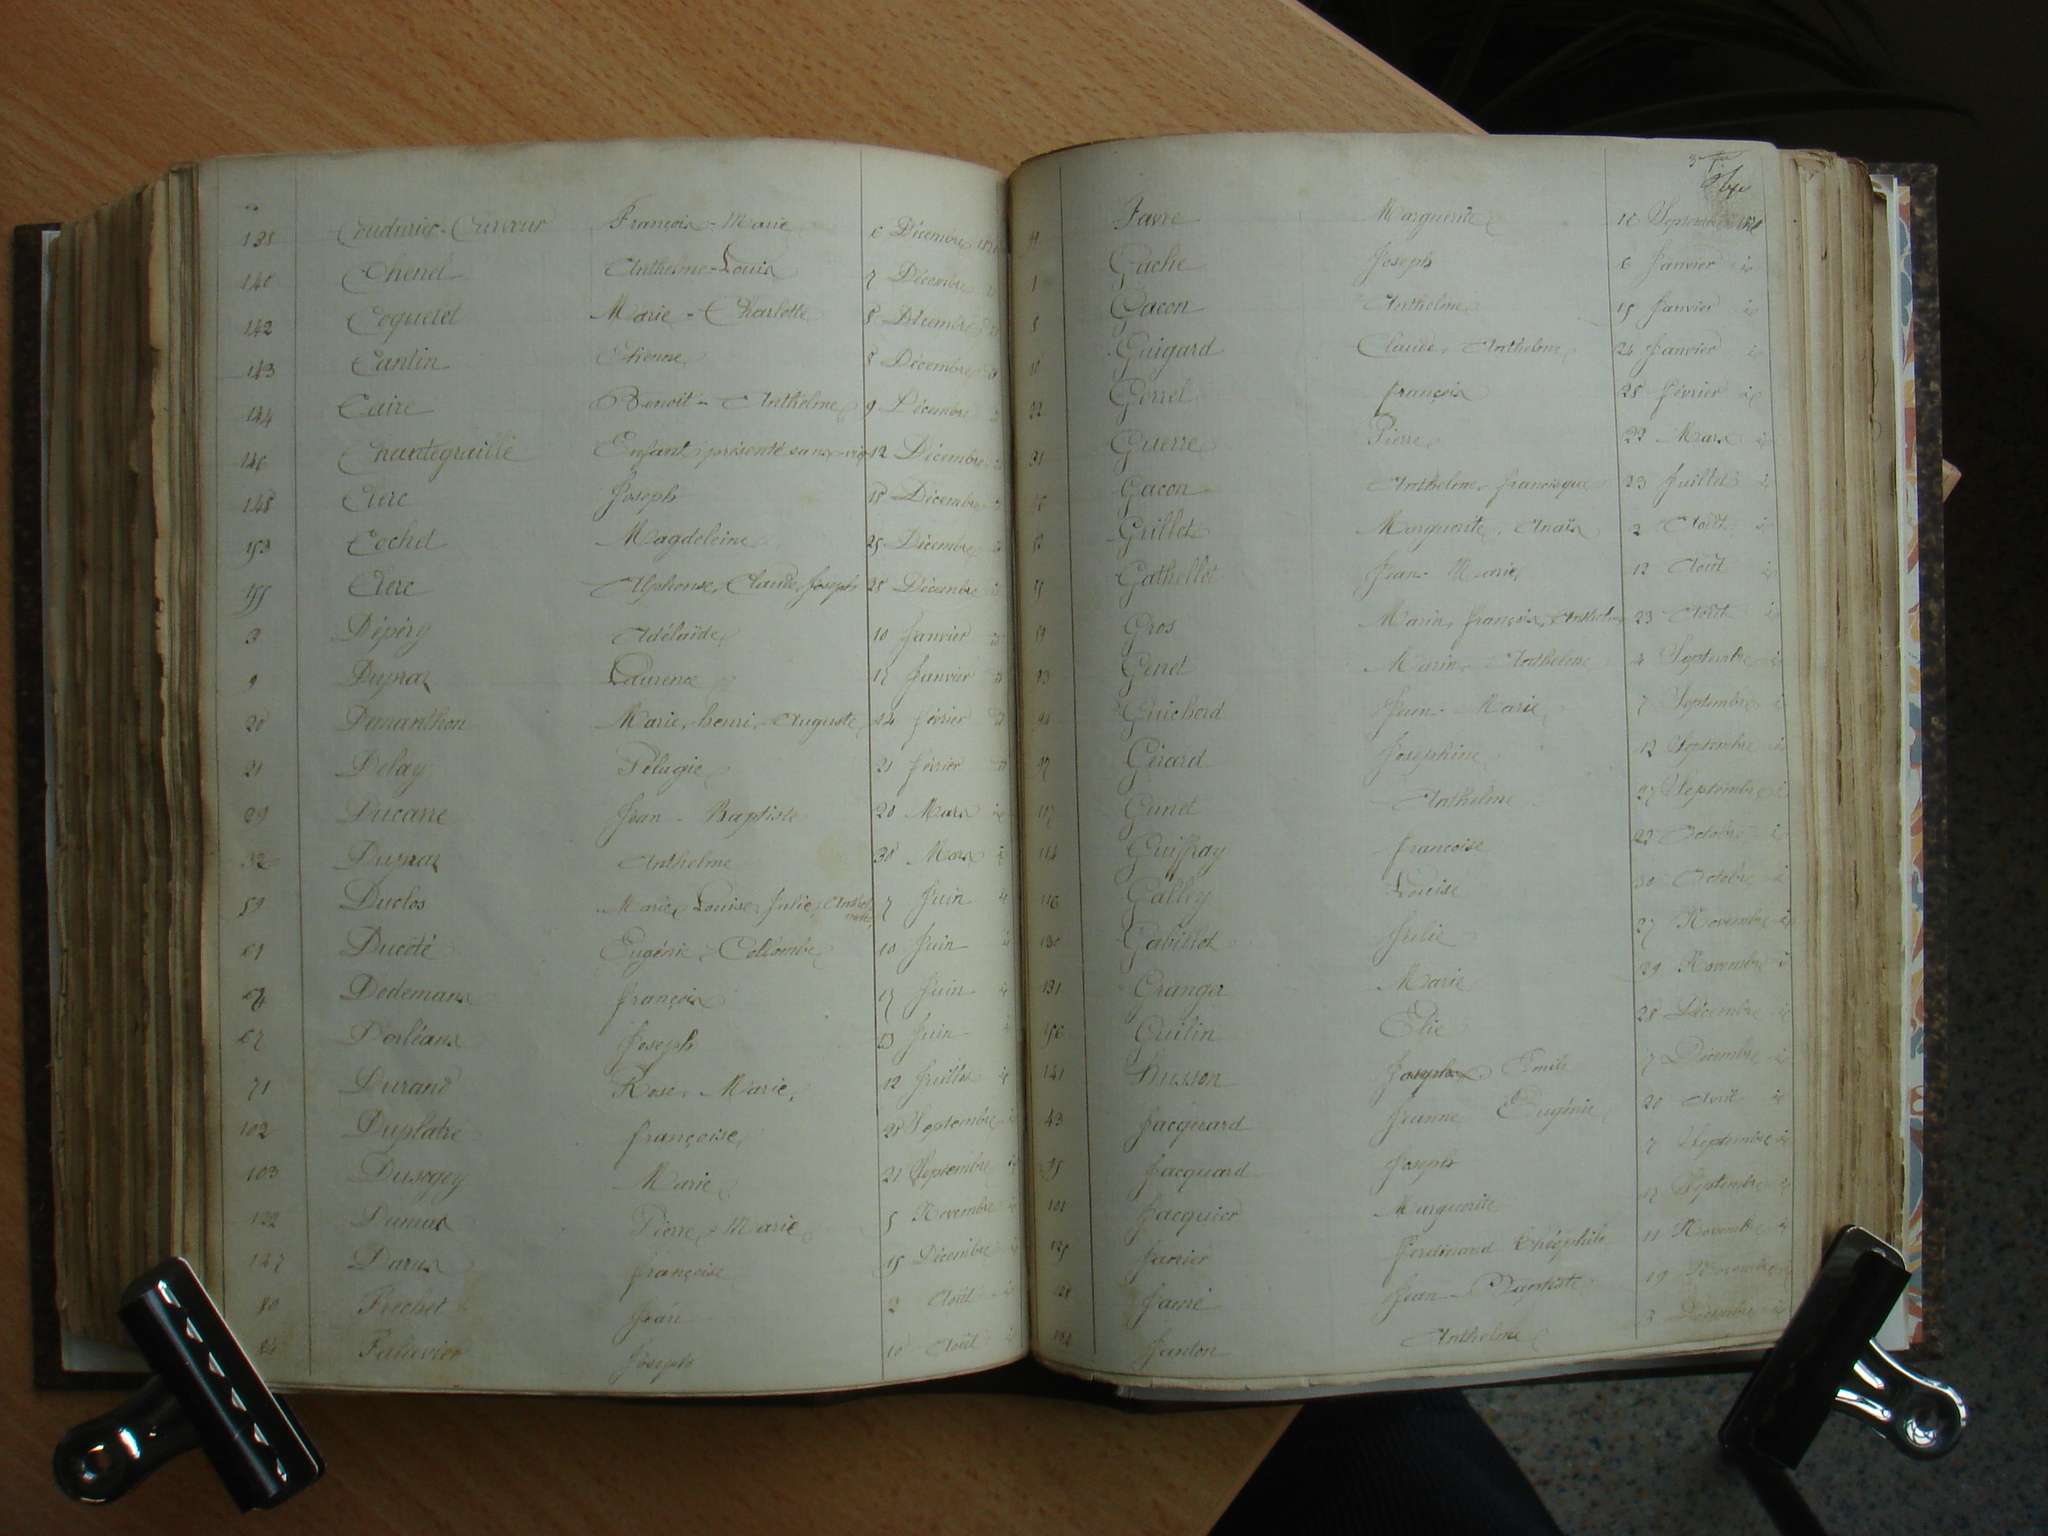 Couturier-Curveur François-Marie 6 Décembre
140 Chenel Anthelme-Louis 7 Décembre
142 Coquelet Marie-Charlotte 8 Décembre
143 Cantin Etienne 8 Décembre
144 Caire Benoît-Anthelme 9 Décembre
146 Chantegraille Enfant présenté sans vie 12 Décembre
148 Clerc Joseph 18 Décembre
153 Cochet Magdeleine 25 Décembre
155 Clerc Alphonse, Claude, Joseph 28 Décembre
3 Dépéry Adélaïde 10 Janvier
9 Dujnaz Laurence 17 Janvier
20 Demanthon Marie, henri, Auguste 14 février
21 Delay Pélagie 21 février
29 Ducarre Jean-Baptiste 20 Mars
32 Dujnaz Anthelme 30 Mars
59 Duclos Marie, Louise, Julie, 7 Juin
61 Ducoté Eugénie-Collombe 10 Juin
Dedemans françois 17 Juin
67 Dorléans Joseph Juin
71 Durand Rose, Marie, 12 Juillet
102 Duplatre françoise, 21 Septembre
103 Dusogey Marie 21 Septembre
122 Dumas Pierre-Marie 5 Novembre
147 Daras françoise 15 Décembre
80 Frechet Jean 3 Août
Falavier Joseph 10 Août
Favre Marguerite 16 Septembre
1 Gache Joseph 6 Janvier
8 Gacon Anthelme 15 Janvier
10 Guigard Claude, Anthelme 24 Janvier
22 Gorrel françois 25 février
31 Guerre Pierre 29 Mars
Gacon Anthelme, francisque 23 Juillet
Grillet Marguerite, Anaïs 2 Août
Gathellot Jean-Marie 12 Août
Gros Marin, françois, Anthelme 23 Août
Genet Marin-Anthelme 4 Septembre
94 Guicherd Jean-Marie 7 Septembre
97 Gérard Josephine 12 Septembre
107 Genet Anthelme 27 Septembre
114 Guiffray francoise 22 Octobre
116 Galley Louise 30 Octobre
130 Gabillot Julie 27 Novembre
131 Granger Marie 29 Novembre
156 Guilin Elie 28 Décembre
141 Husson Joseph Emile 7 Décembre
43 Jacquard Jeanne Eugénie 20 Août
95 Jacquard Joseph 7 Septembre
101 Jacquier Marguerite 17 Septembre
125 Janier Ferdinand Théophile 11 Novembre
128 Jamé Jean-Baptiste 19 Novembre
134 Jardon Anthelme 3 Décembre